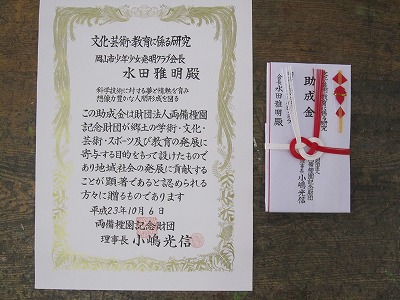 文化・芸術・教育に係る研究
岡山市少年少女発明クラブ会長
水田雅明殿
科学技術に対する夢と情熱を育み
想像力豊かな人間形成を図る
この助成金は財団法人両備檉園
記念財団が郷土の学術・文化・
芸術・スポーツ及び教育の発展に
寄与する目的をもって設けたもので
あり地域社会の発展に貢献する
ことが顕著であると認められる
方々に贈るものであります
平成23年10月6日
両備檉園記念財団
理事長 小嶋光信
文化・芸術・教育に係る研究
助成金
会長 水田雅明殿
理事長 小嶋光信